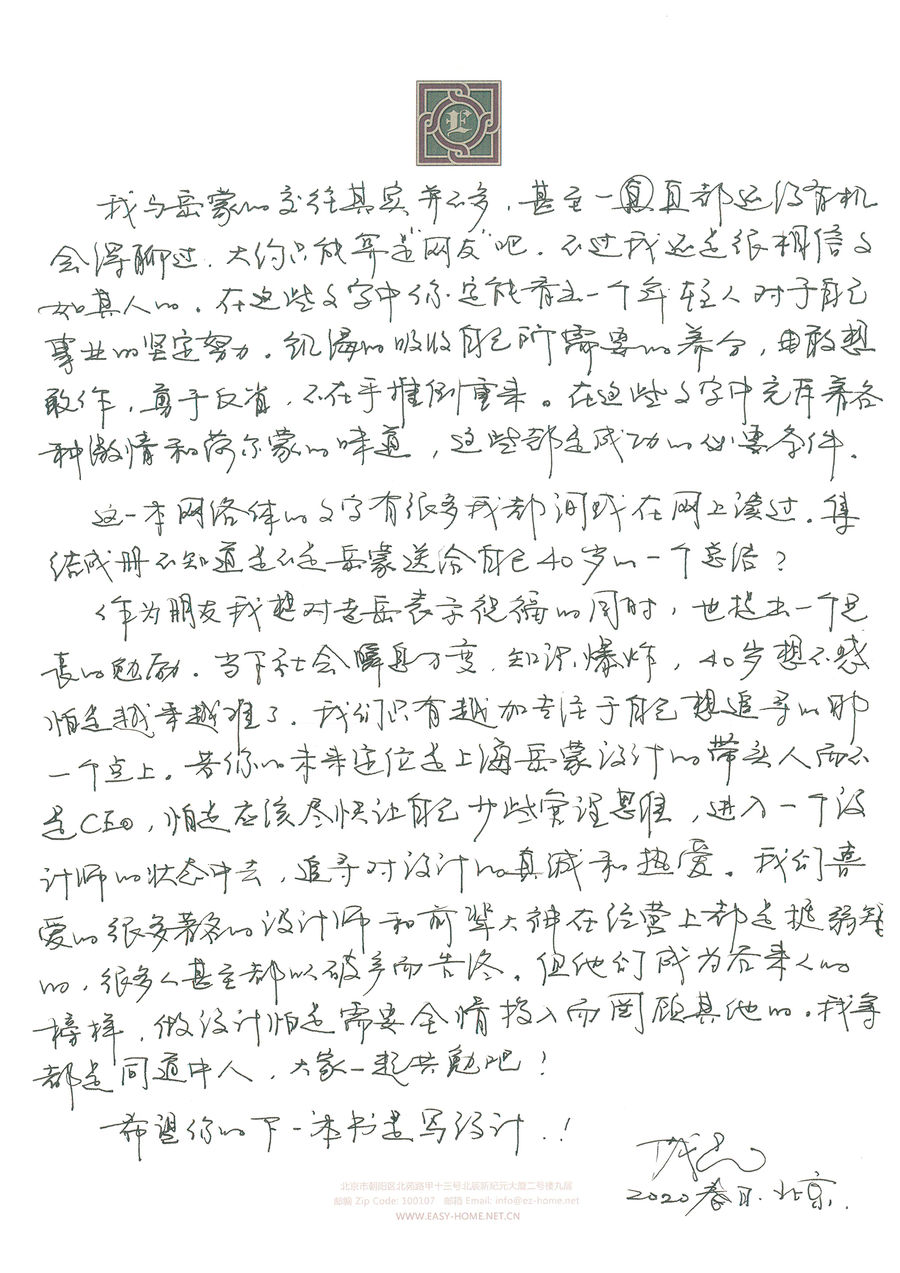 E
我与岳蒙的交往其实并不多，甚至一直直都还没有机
会深聊过．大约只能算是"网友"吧．不过我还是很相信文
如其人的．在这些文字中你定能看出一个年轻人对于自己
事业的坚定努力。饥渴的吸收自己所需要的养分，由敢想
敢作，勇于反省，不在乎推倒重来。在这些文字中充斥着各
种激情和荷尔蒙的味道，这些都是成功的必要条件．
这一本网络体的文字有很多我都间或在网上读过．集
结成册不知道是不是岳蒙送给自己40岁的一个总结？
作为朋友我想对老岳表示祝福的同时，也提出一个
的勉励．当下社会瞬息万变．知识爆炸，40岁想不惑
怕是越来越难了．我们只有越加专注于自己想追寻的那
一个点上。若你的未来定位是上海岳蒙设计的带头人而不
是CEO，怕是应该尽快让自己少些管理思维，进入一个设
计师的状态中去，追寻对设计的真诚和热爱。我们喜
爱的很多著名的设计师和前辈大神在经营上都是挺弱智
的，很多人甚至都以破产而告终。但他们成为后来人的
榜样．做设计怕是需要全情投入而罔顾其他的．我等
都是同道中人，大家一起共勉吧！
希望你的下一本书是写设计．！
2020春日．北京．
北京市朝阳区北苑路甲十三号北辰新纪元大厦二号楼九层
邮编 Zip Code: 100107 邮箱 Email: info@ez-home.net
WWW.EASY-HOME.NET.CN